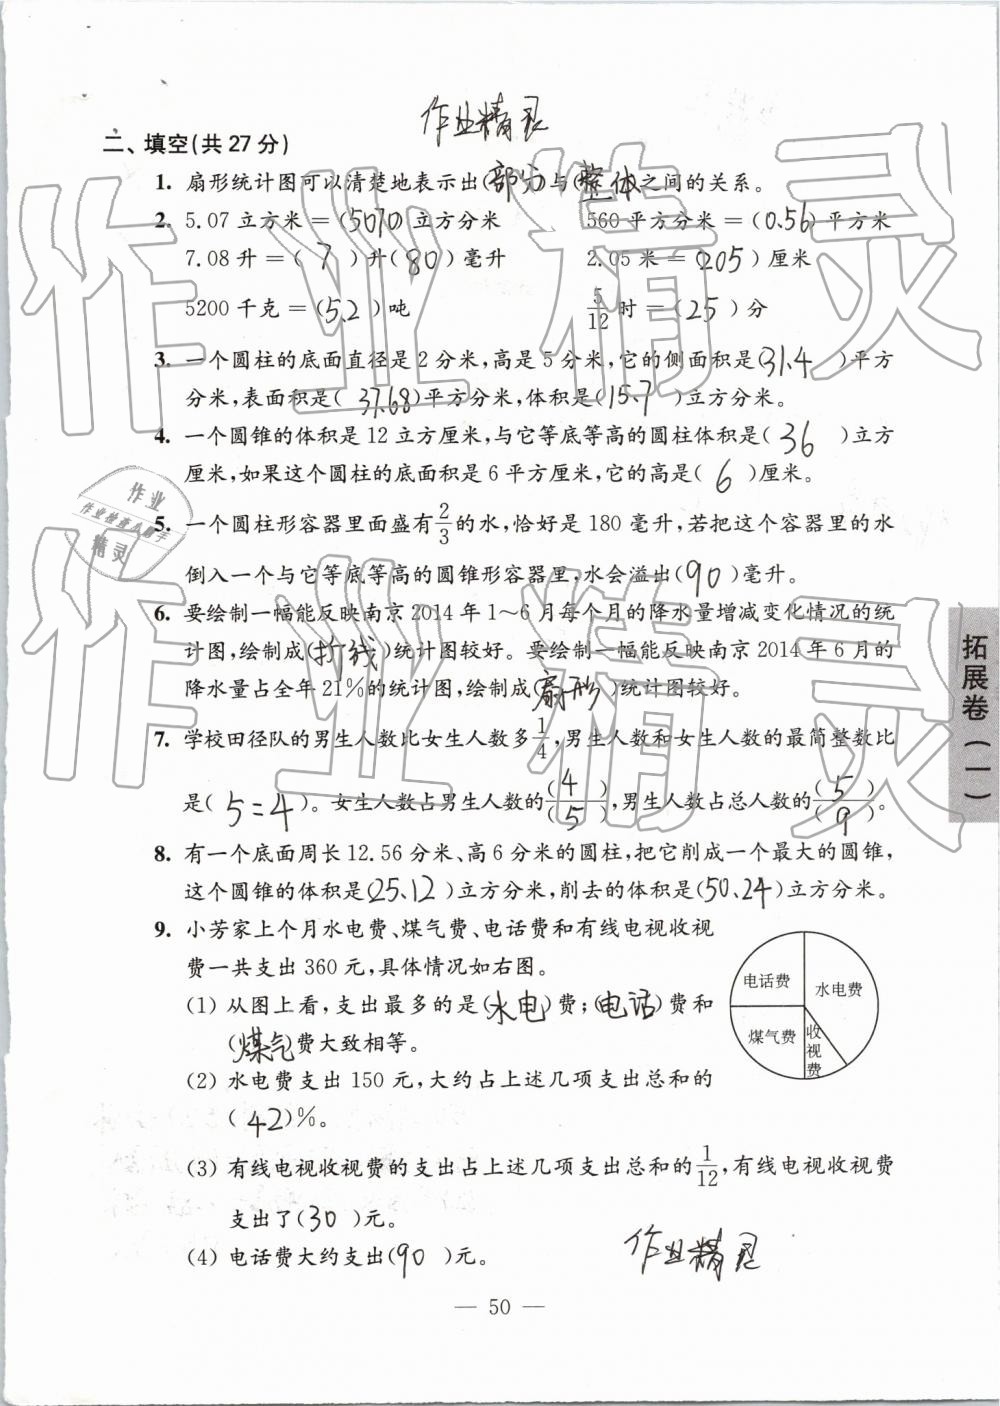 作业精灵
二、填空(共27分)
1. 扇形统计图可以清楚地表示出(部分)与(整体)之间的关系。
2. 5.07立方米＝(5070)立方分米 560平方分米＝(0.56)平方米
7.08升＝( 7 )升(80)毫升 2.05米＝(205)厘米
5200千克＝(5.2)吨 5/12时＝(25)分
3. 一个圆柱的底面直径是2分米,高是5分米,它的侧面积是(31.4)平方
分米,表面积是(37.68)平方分米,体积是(15.7)立方分米。
4. 一个圆锥的体积是12立方厘米,与它等底等高的圆柱体积是(36)立方
厘米,如果这个圆柱的底面积是6平方厘米,它的高是(6)厘米。
5. 一个圆柱形容器里面盛有2/3的水,恰好是180毫升,若把这个容器里的水
倒入一个与它等底等高的圆锥形容器里,水会溢出(90)毫升。
6. 要绘制一幅能反映南京2014年1～6月每个月的降水量增减变化情况的统
计图,绘制成(折线)统计图较好。要绘制一幅能反映南京2014年6月的
降水量占全年21%的统计图,绘制成(扇形)统计图较好。
7. 学校田径队的男生人数比女生人数多1/4,男生人数和女生人数的最简整数比
是(5:4)。女生人数占男生人数的(4)/(5),男生人数占总人数的(5)/(9)。
8. 有一个底面周长12.56分米、高6分米的圆柱,把它削成一个最大的圆锥,
这个圆锥的体积是(25.12)立方分米,削去的体积是(50.24)立方分米。
9. 小芳家上个月水电费、煤气费、电话费和有线电视收视
费一共支出360元,具体情况如右图。
(1) 从图上看,支出最多的是(水电)费;(电话)费和
(煤气)费大致相等。
(2) 水电费支出150元,大约占上述几项支出总和的
(42)%。
(3) 有线电视收视费的支出占上述几项支出总和的1/12,有线电视收视费
支出了(30)元。
(4) 电话费大约支出(90)元。
电话费
水电费
煤气费
收视费
作业精灵
— 50 —
拓展卷(一)
作业
作业检查小助手
精灵
作业精灵
作业精灵